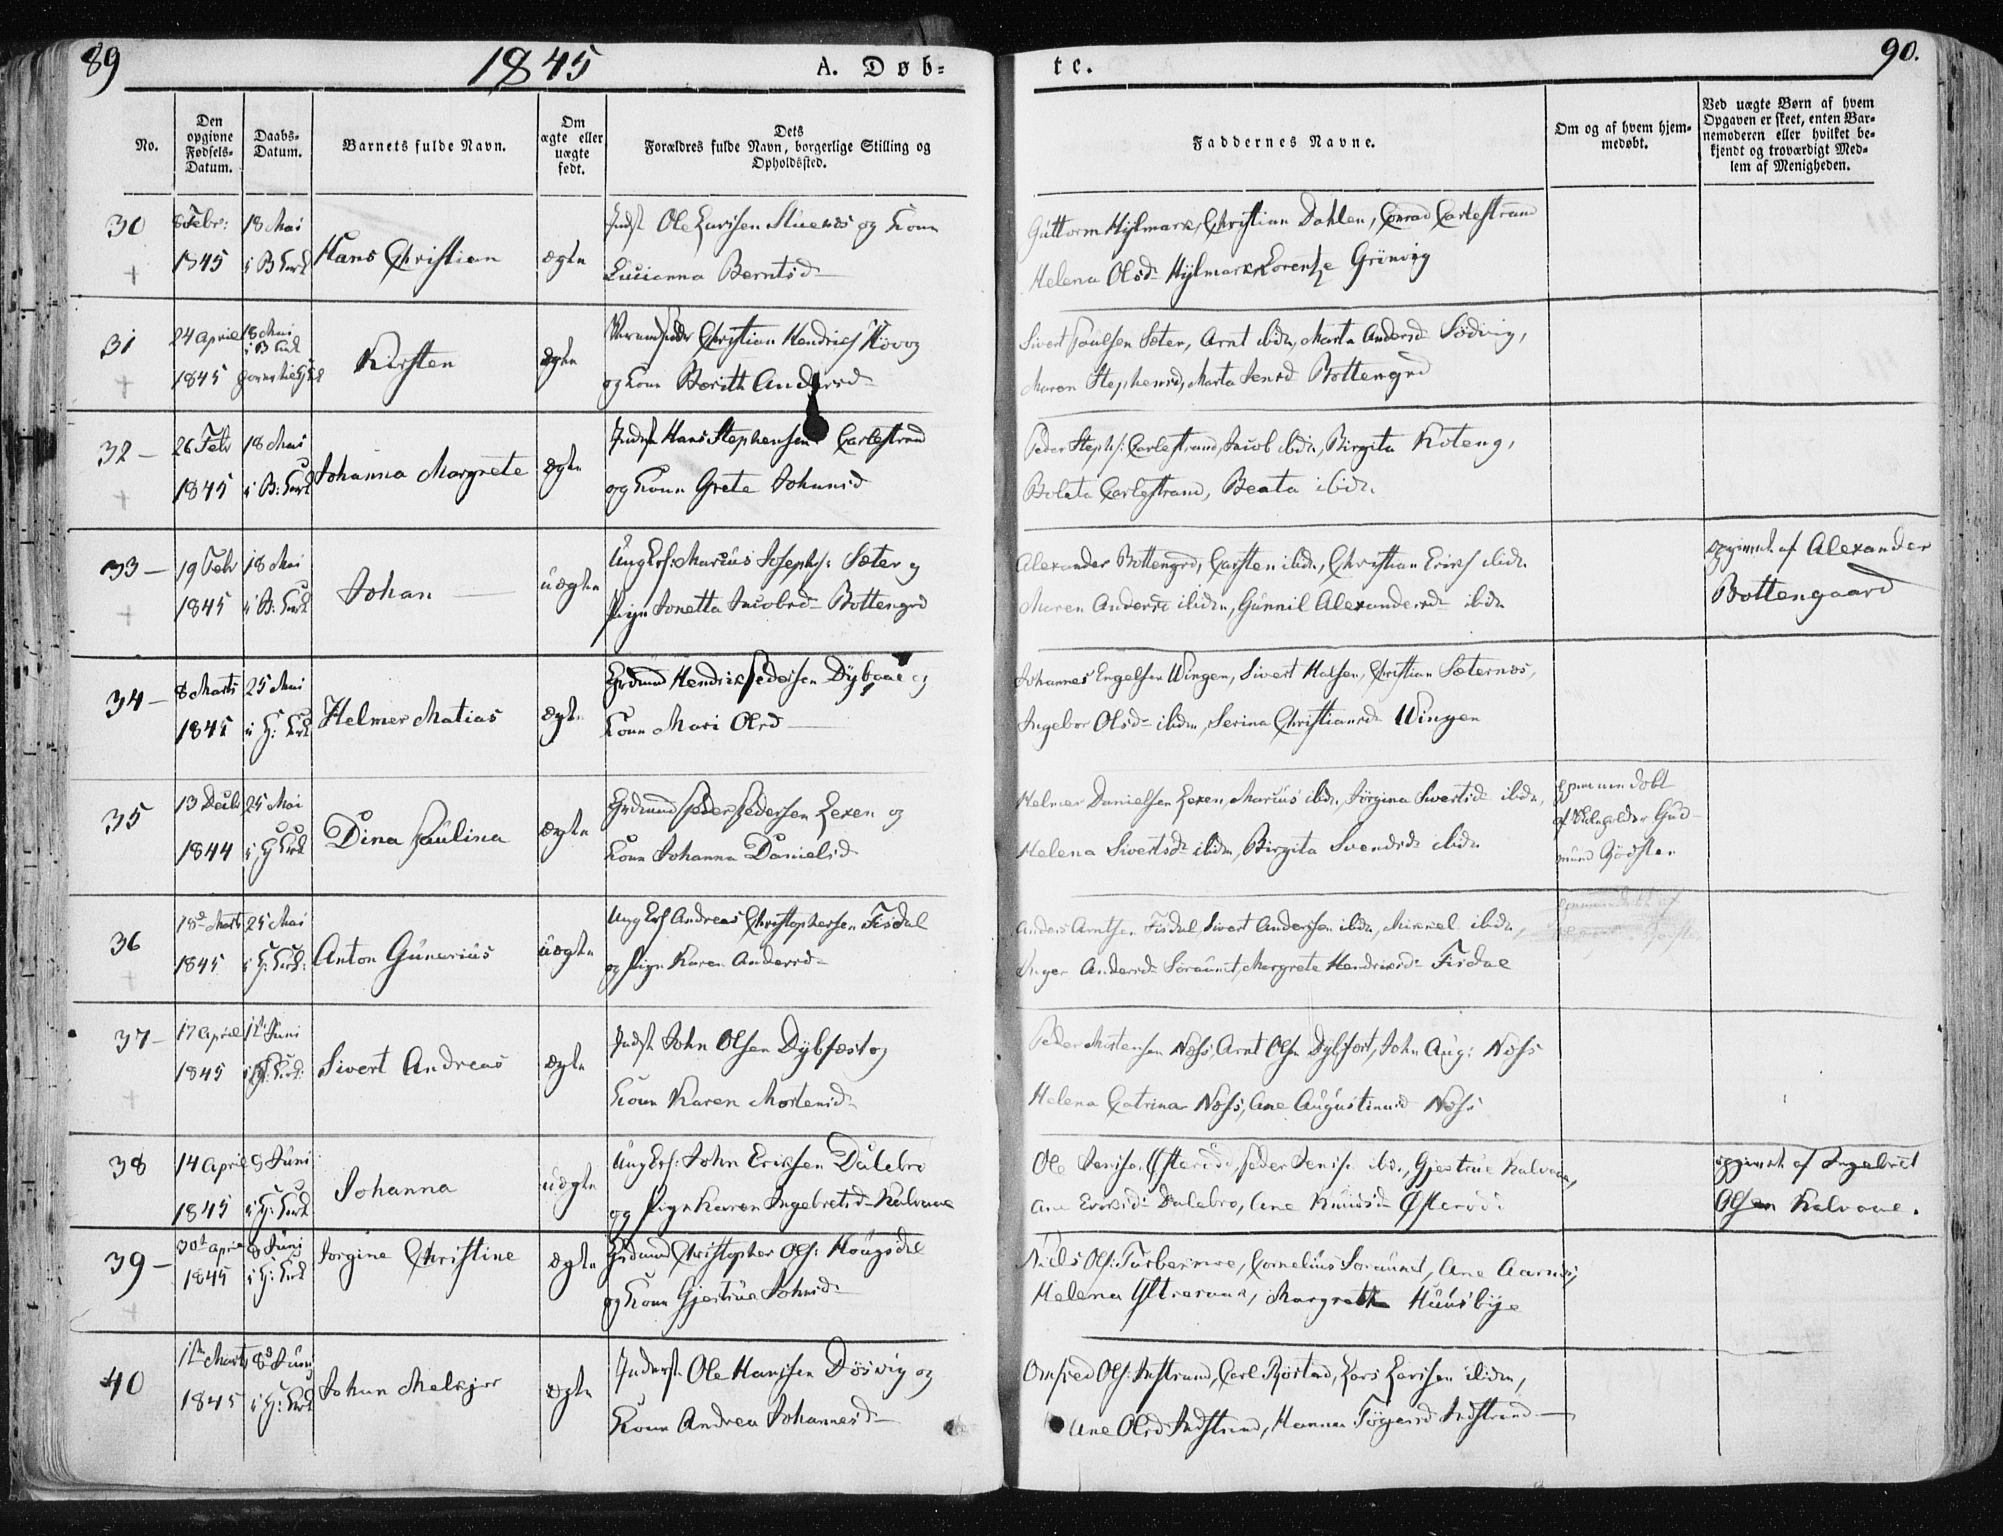 89
1845
A. Døb-
te.
90.
No.
Den opgivne Fødsels-Datum.
Daabs-Datum.
Barnets fulde Navn.
Om ægte eller uægte født.
Dets Forældres fulde Navn, borgerlige Stilling og Opholdssted.
Faddernes Navne.
Om og af hvem hjem-medøbt.
Ved uægte Børn af hvem Opgaven er skeet, enten Bar-nemoderen eller hvilket be-kjendt og troværdigt Med-lem af Menigheden.
30
8 Febr: 18 Mai
1845 i B Kirk
Hans Christian
ægte
Inds Ole Larssen og Kone
Lucianna Berntsd
Guttorm Hjelmark, Christian Dahlen, Conrad Carlestrand
Helena Olsd Hjelmark, Lorentze Grönvig
31
24 April 18 Mai
1845
Kirsten
ægte
Christian Hendrichs
og Kone Berith Andersd
Sivert Paulsen Sæter, Arnt ibidn, Marta Andersd Södvig,
Maren Stephensd, Marta Jensd Bottengrd
32
26 Febr 18 Mai
1845 i B: Kirk
Johanna Margrete
ægte
Inds Hans Stephensen Carlestrand
og Kone Grete Johansd
Peder Steph: Carlestrand, Jacob ibidn, Birgita Koteng,
Boleta Carlestrand, Beata ibidn
33
19 Febr 18 Mai
1845 i B: Kirk
Johan
uægte
Ung Erf: Marius Joseph: Sæter og
Pign Jonetta Jacobsd Bottengrd
Alexander Bottengrd, Carsten ibidn, Christian Erichs ibidn
Maren Andersd ibidn, Gunnil Alexandersd ibidn
opgivet af Alexander
Bottengaard
34
8 Marts 25 Mai
1845 i H: Kirk
Helmer Matias
ægte
Grdmand Hendrik Pedersen Dybvad og
Kone Mari Olsd
Johannes Engelsen Wingen, Sivert, Christian Sæternæs,
Ingebor Olsd ibidn, Serina Christiansd Wingen
35
13 Decbr 25 Mai
1844 i H Kirk
Dina Paulina
ægte
Grdmand Peder Pedersen Lexen og
Kone Johanna Danielsd
Helmer Danielsen Lexen, Marius ibidn, Jörgina Sivertsd ibidn,
Helena Sivertsd ibidn, Birgita Svendsd ibidn
Hjemmedøbt
af Gud-
mund Rödsten
36
18 Marts 25 Mai
1845 i H: Kirk
Anton Gunerius
uægte
Ung Erf Andreas Christophersen Fisdal
og Pign Karen Andersd
Anders Arntsen Fisdal, Sivert Anderssen ibidn, Mikkel ibidn,
Inger Andersd Soraunet, Margrete Hendriksd Fisdal
37
17 April 12 Juni
1845
Sivert Andreas
ægte
Inds John Olsen Dybfæst og
Kone Karen Mortensd
Peder Mortensen Næss, Arnt Olsn Dybfæst, John Aug: Næss
Helena Catrina Næss, Ane Augustinusd Næss
38
14 April 8 Juni
1845 i H: Kirk
Johanna
uægte
Ung Erf: John Eriksen Dalebro
og Pign Karen Ingebretsd Kalvaae
Ole Jensen Østerød, Peder Jensen ibidn, Gjertrue Kalvaae,
Ane Eriksd Dalebro, Ane Knudsd Østerød
opgivet af Ingebret
Olsen Kalvaae.
39
30 April 8 Juni
1845 i H: Kirk
Jorgine Christine
ægte
Grdmand Christopher Ols: Hougsdal
og Kone Gjertrue Johnsd
Niels Ols: Turbermoe, Cornelius Soraunet, Ane Aarnes,
Helena, Margrethe Huusbye
40
12 Marts 8 Juni
1845 i H: Kirk
Johan Melkjor
ægte
Inderst Ole Hanssen Dösvig og
Kone Andrea Johannesd
Omfred Ols: Indstrand, Carl Rörstad, Lars Larssen ibidn,
Ane Olsd Indstrand, Hanna Indstrand